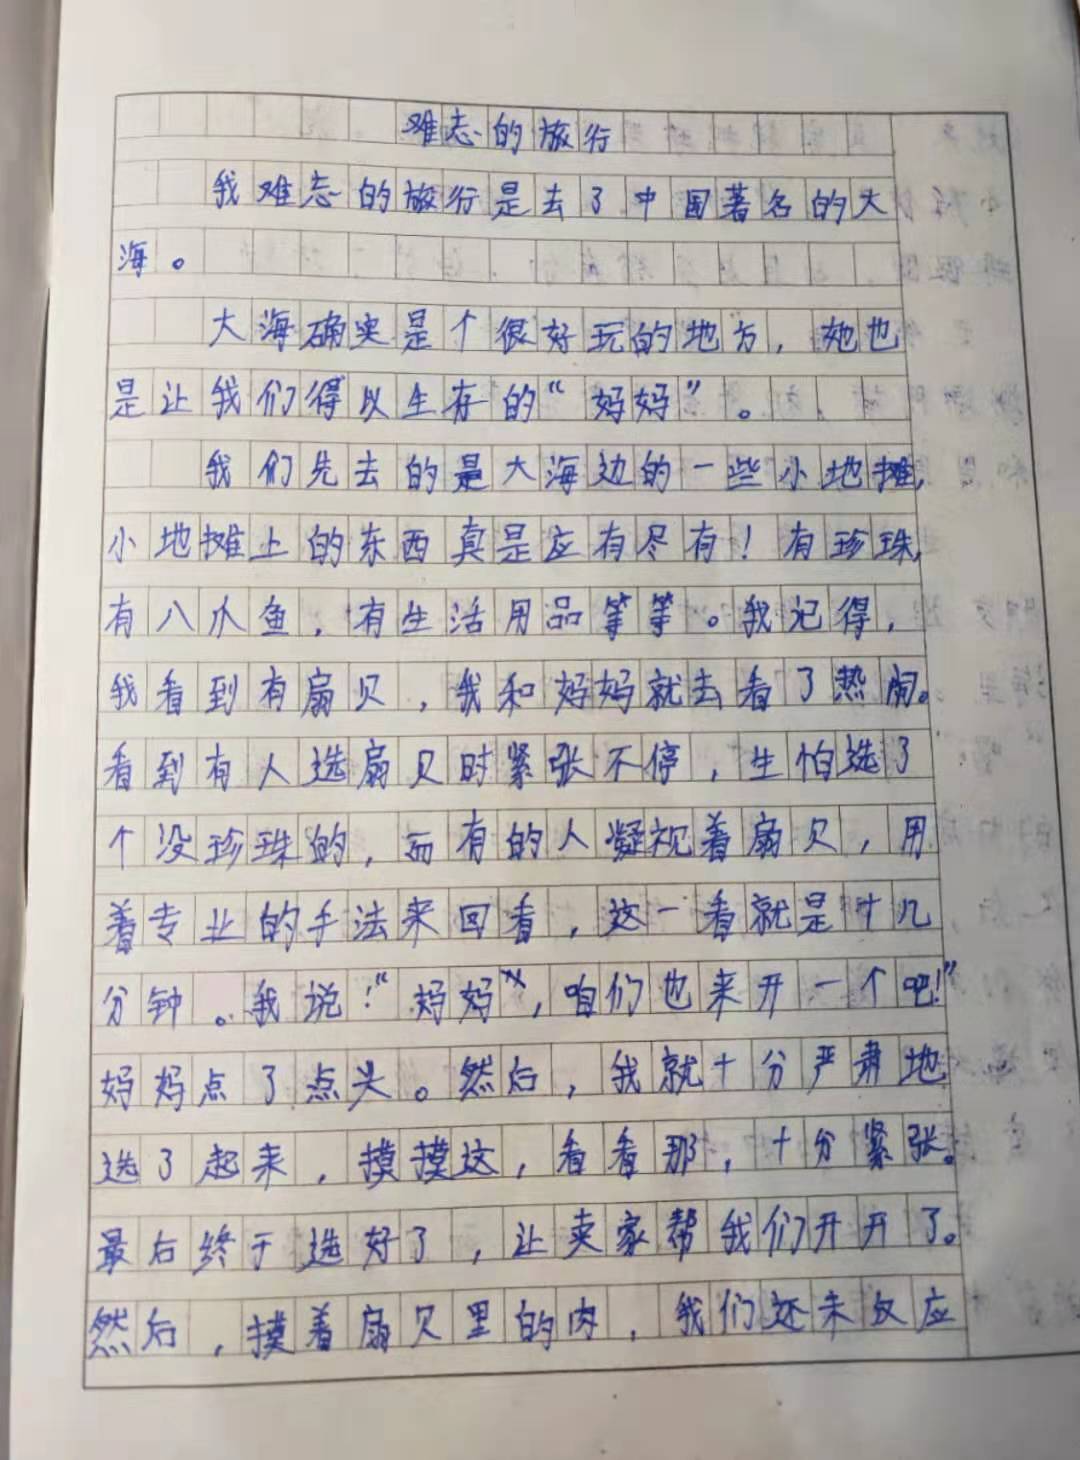 难忘的旅行
我难忘的旅行是去了中国著名的大
海。
大海确实是个很好玩的地方，她也
是让我们得以生存的“妈妈”。
我们先去的是大海边的一些小地摊，
小地摊上的东西真是应有尽有！有珍珠，
有八爪鱼，有生活用品等等。我记得，
我看到有扇贝，我和妈妈就去看了热闹。
看到有人选扇贝时紧张不停，生怕选了
个没珍珠的，而有的人凝视着扇贝，用
着专业的手法来回看，这一看就是十几
分钟。我说：“妈妈”，咱们也来开一个吧！”
妈妈点了点头。然后，我就十分严肃地
选了起来，摸摸这，看看那，十分紧张。
最后终于选好了，让卖家帮我们开开了。
然后，摸着扇贝里的肉，我们还未反应